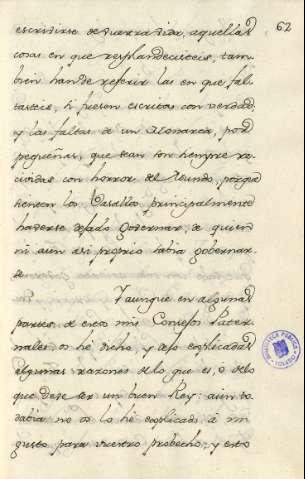 62
escribirse de vuestra vida, aquellas
cosas en que resplandecisteis, tam-
bien han de referir las en que fal-
tasteis, si fuesen escritas con verdad
y las faltas de un Monarca, por
pequeñas, que sean son siempre re-
cividas con horror del Mundo, porque
tienen los Vasallos principalmente
haverse dejado governar, de quien
ni aun asi proprio sabia governar-
se.
Y aunque en algunas
partes de estos mis Consejos Pater-
nales, os hé dicho y dejo explicadas
algunas razones de lo que es, o de lo
que deve ser un buen Rey: aun to-
davia no os lo hé explicado á mi
gusto para vuestro probecho: y esto
BIBLIOTECA PUBLICA
TOLEDO